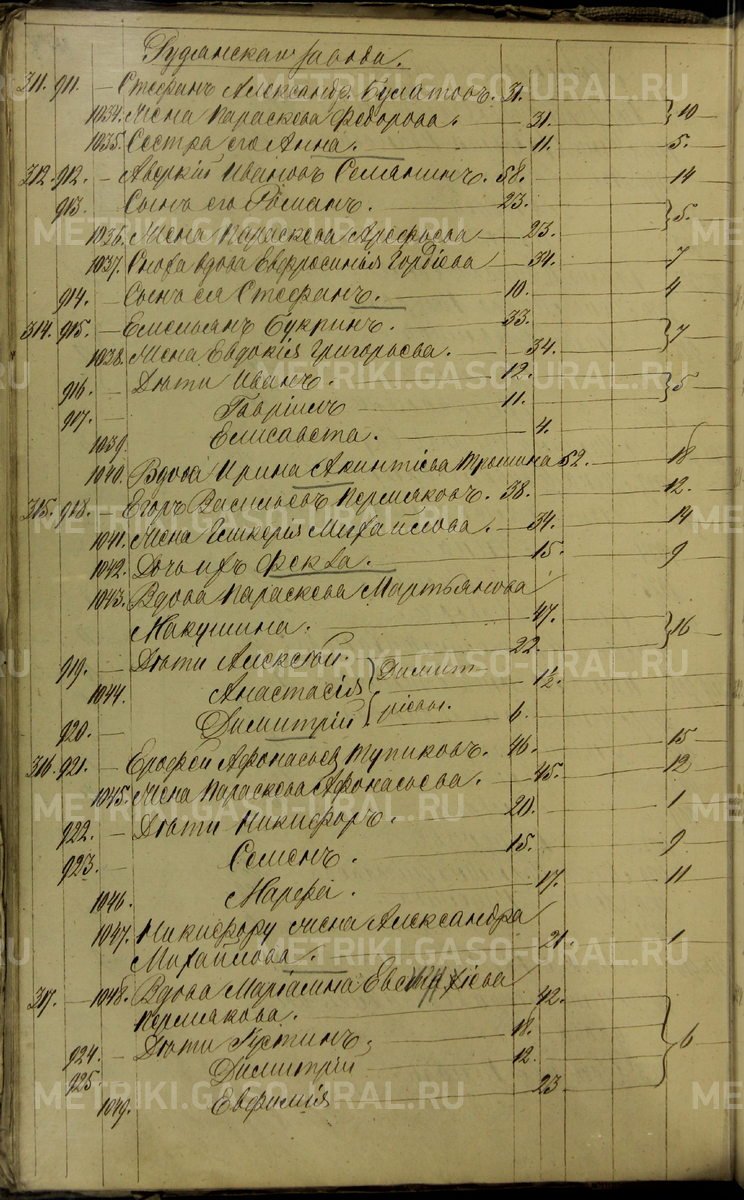 завода.
311. 911. — Стефанъ Александр. Булатовъ. 31.
1034. Жена Параскева Федорова. — 31. } 10 —
1035. Сестра его Анна. — 11. 5.
312. 912. — Аверкий Ивановъ Семянинъ. 58. 14
913. — Сынъ его Романъ. — 23.
1036. Жена Параскева Арефьева — 23. } 5.
1037. Сноха вдова Евфросинья Гордѣева — 34. 7
914. — Сынъ ея Стефанъ. — 10. 4
314. 915. — Емельянъ Букринъ. — 33.
1038. Жена Евдокія Григорьева. — 34. } 7
916. — Дѣти Иванъ. — 12.
917. — Гавріилъ — 11. } 5
1039. Елисавета. — 4.
1040. Вдова Ирина Акинтіева 52. 18
315. 918. — Егоръ Васильевъ Пермяковъ. 38. 12.
1041. Жена Гликерія Михайлова. — 34. 14
1042. Дочь ихъ Фекла. — 15. 9
1043. Вдова Параскева Мартьянова
Макушина. — 47. } 16
919. — Дѣти Алексѣй. 22.
1044. Анастасія } Димит 12.
920. — Димитрій { ріевы. 6.
316. 921. — Ерофей Афонасьев Тупиковъ. 46. 15
1045. Жена Параскева Афонасьева. — 45. 12
922. — Дѣти Никифоръ. — 20. 1
923. — Семенъ. — 15. 9
1046. Марфа. — 17. 11
1047. Никифору жена Александра
Михайлова. — 21. 1
317. — 1048. Вдова Маріамна
Пермякова. — 42.
924. — Дѣти Іустинъ. 18. } 6
925. Димитрій — 12.
1049. Евфимія — 23
METRIKI.GASO-URAL.RU